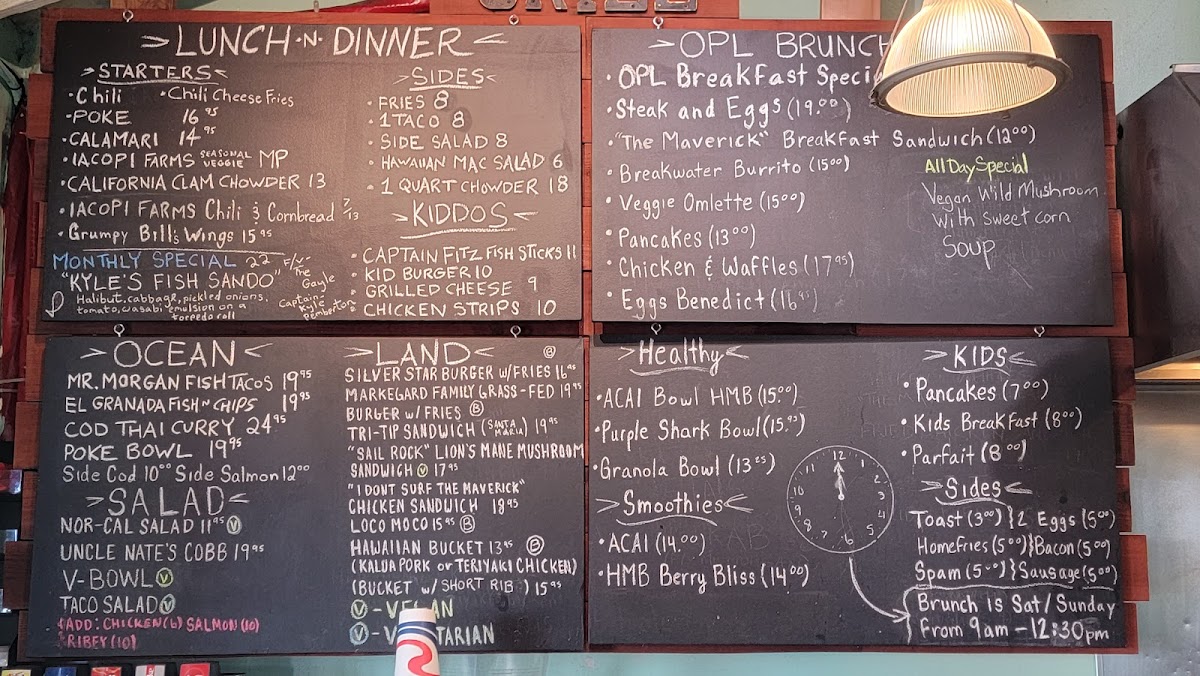 GRILL
LUNCH-N-DINNER
STARTERS
Chili • Chili Cheese Fries
POKE 16 95
CALAMARI 14 95
IACOPI FARMS SEASONAL VEGGIE MP
CALIFORNIA CLAM CHOWDER 13
IACOPI FARMS Chili & Cornbread 7/13
Grumpy Bill's Wings 15 95
MONTHLY SPECIAL 22
"KYLE'S FISH SANDO"
Halibut, cabbage, pickled onions,
tomato, wasabi emulsion on a
torpedo roll
The
Gayle
Captain
Kyle
Pemberton
SIDES
FRIES 8
1 TACO 8
SIDE SALAD 8
HAWAIIAN MAC SALAD 6
1 QUART CHOWDER 18
KIDDOS
CAPTAIN FITZ FISH STICKS 11
KID BURGER 10
GRILLED CHEESE 9
CHICKEN STRIPS 10
OPL BRUNCH
OPL Breakfast Speci
Steak and Eggs (19.00)
"The Maverick" Breakfast Sandwich (12 00)
Breakwater Burrito (15 00)
Veggie Omlette (15 00)
Pancakes (13 00)
Chicken & Waffles (17 95)
Eggs Benedict (16 95)
All Day Special
Vegan Wild Mushroom
with sweet corn
Soup
OCEAN
MR. MORGAN FISH TACOS 19 95
EL GRANADA FISH N CHIPS 19 95
COD THAI CURRY 24 95
POKE BOWL 19 95
Side Cod 10 00 Side Salmon 12 00
SALAD
NOR-CAL SALAD 11 95 V
UNCLE NATE'S COBB 19 95
V-BOWL V
TACO SALAD V
ADD: CHICKEN (6) SALMON (10)
RIBEY (10)
LAND B
SILVER STAR BURGER w/FRIES 16 95
MARKEGARD FAMILY GRASS-FED 19 95
BURGER w/ FRIES B
TRI-TIP SANDWICH (SANTA MARIA) 19 95
"SAIL ROCK" LION'S MANE MUSHROOM
SANDWICH V 17 95
"I DONT SURF THE MAVERICK"
CHICKEN SANDWICH 18 95
LOCO MOCO 15 95 B
HAWAIIAN BUCKET 13 95 B
(KALUA PORK or TERIYAKI CHICKEN)
(BUCKET w/ SHORT RIB) 15 95
V - VEGAN
V - V TARIAN
Healthy
ACAI Bowl HMB (15.00)
Purple Shark Bowl (15.95)
Granola Bowl (13 25)
Smoothies
ACAI (14.00)
HMB Berry Bliss (14 00)
12
1
2
3
4
5
6
7
8
9
10
11
KIDS
Pancakes (7 00)
Kids Breakfast (8 00)
Parfait (8 00)
Sides
Toast (3 00) } 2 Eggs (5 00)
Homefries (5 00) } Bacon (5 00)
Spam (5 00) } Sausage (5 00)
Brunch is Sat/Sunday
From 9am - 12:30pm